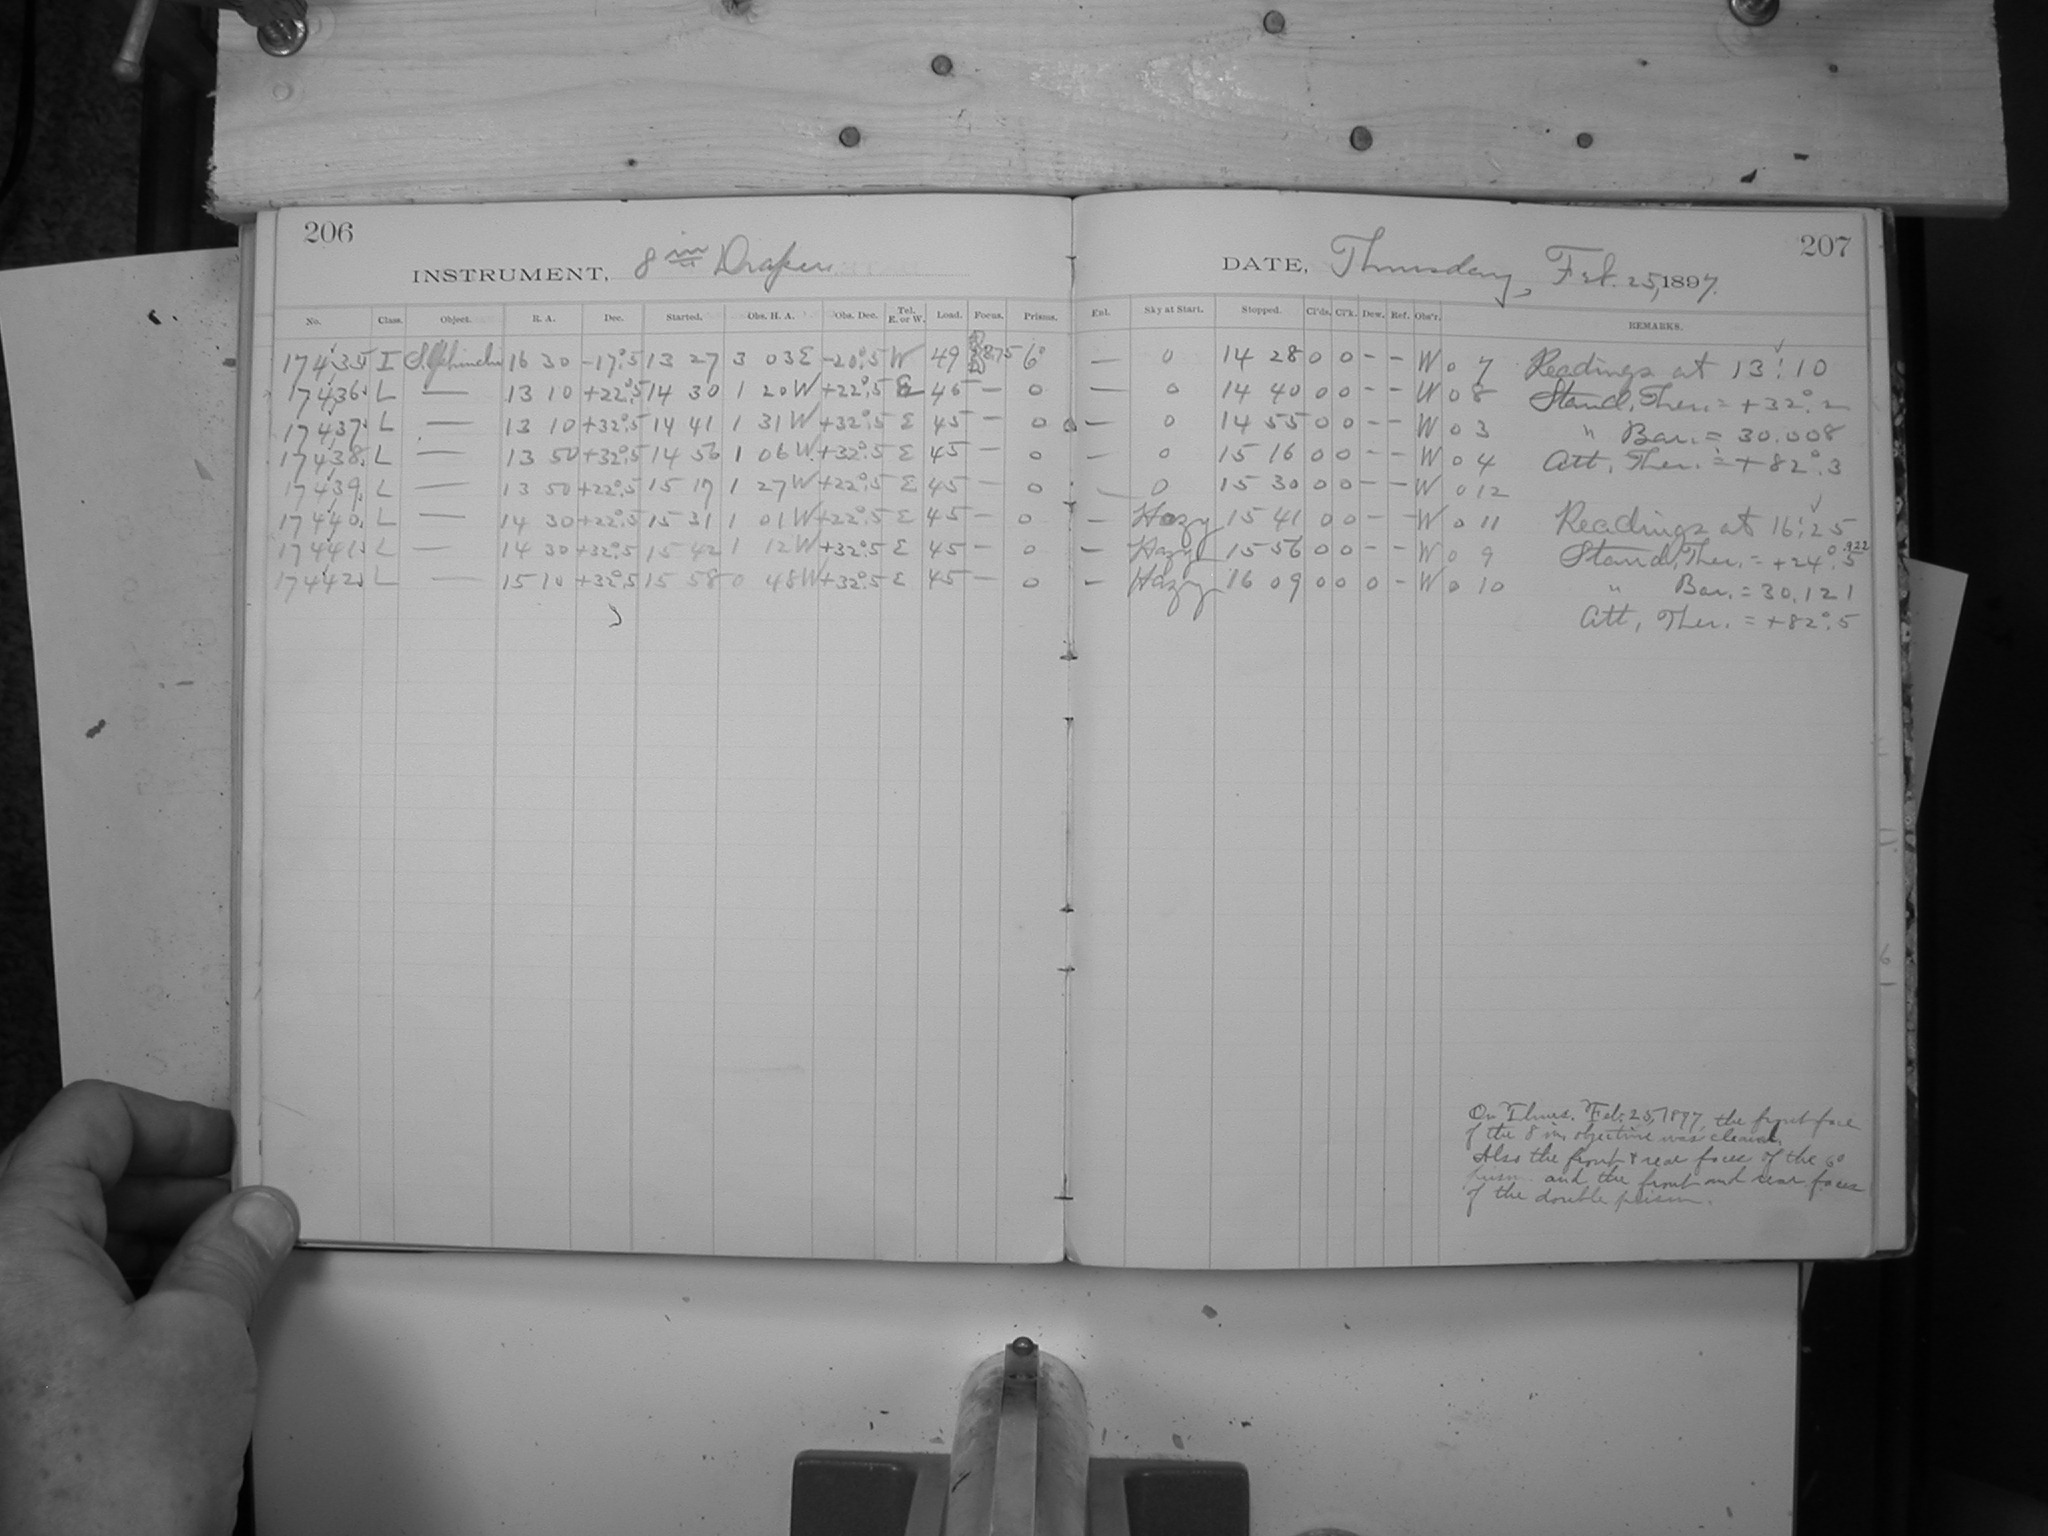 206
INSTRUMENT, 8 in Draper
No. Class. Object. R. A. Dec. Started. Obs. H. A. Obs. Dec. Tel. E. or W. Load. Focus. Prisms.
17435 I S. Ophiuchi 16 30 -17°.5 13 27 3 03 E -20°.5 W 49 6°
17436 L — 13 10 +22°.5 14 30 1 20 W +22°.5 E 45 — 0
17437 L — 13 10 +32°.5 14 41 1 31 W +32°.5 E 45 — 0
17438 L — 13 50 +32°.5 14 56 1 06 W +32°.5 E 45 — 0
17439 L — 13 50 +22°.5 15 17 1 27 W +22°.5 E 45 — 0
17440 L — 14 30 +22°.5 15 31 1 01 W +22°.5 E 45 — 0
17441 L — 14 30 +32°.5 15 42 1 12 W +32°.5 E 45 — 0
17442 L — 15 10 +32°.5 15 58 0 48 W +32°.5 E 45 — 0
207
DATE, Thursday, Feb. 25, 1897.
Enl. Sky at Start. Stopped. Cl'ds. Cl'k. Dew. Ref. Obs'r. REMARKS.
— 0 14 28 0 0 - - W 0 7 Readings at 13:10
— 0 14 40 0 0 - - W 0 8 Stand. Ther. = +32°.2
— 0 14 55 0 0 - - W 0 3 " Bar. = 30.008
— 0 15 16 0 0 - - W 0 4 Att. Ther. = +82°.3
— 0 15 30 0 0 - - W 0 12
— Hazy 15 41 0 0 - - W 0 11 Readings at 16:25
— Hazy 15 56 0 0 - - W 0 9 Stand. Ther. = +24°.5
— Hazy 16 09 0 0 0 - W 0 10 " Bar. = 30.121
Att. Ther. = +82°.5
On Thurs. Feb. 25, 1897, the front face
of the 8 in. objective was cleaned.
Also the front & rear faces of the 6°
prism and the front and rear faces
of the double prism.